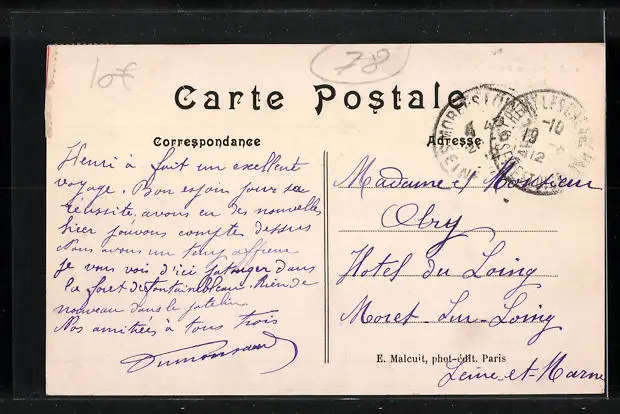 10€
78
Carte Postale
Correspondance
Adresse
Henri à fait un excellent
voyage. Bon espoir pour sa
réussite, avons eu des nouvelles
hier pouvons compte dessus
Nous avons un temp affreux
je vous vois d'ici patauger dans
la foret de fontainebleau. Rien de
nouveau dans le
Nos amitiées à tous trois
Madame & Monsieur
Obry
Hotel du Loing
Moret-Sur-Loing
Seine-et-Marne
E. Malcuit, phot-édit. Paris